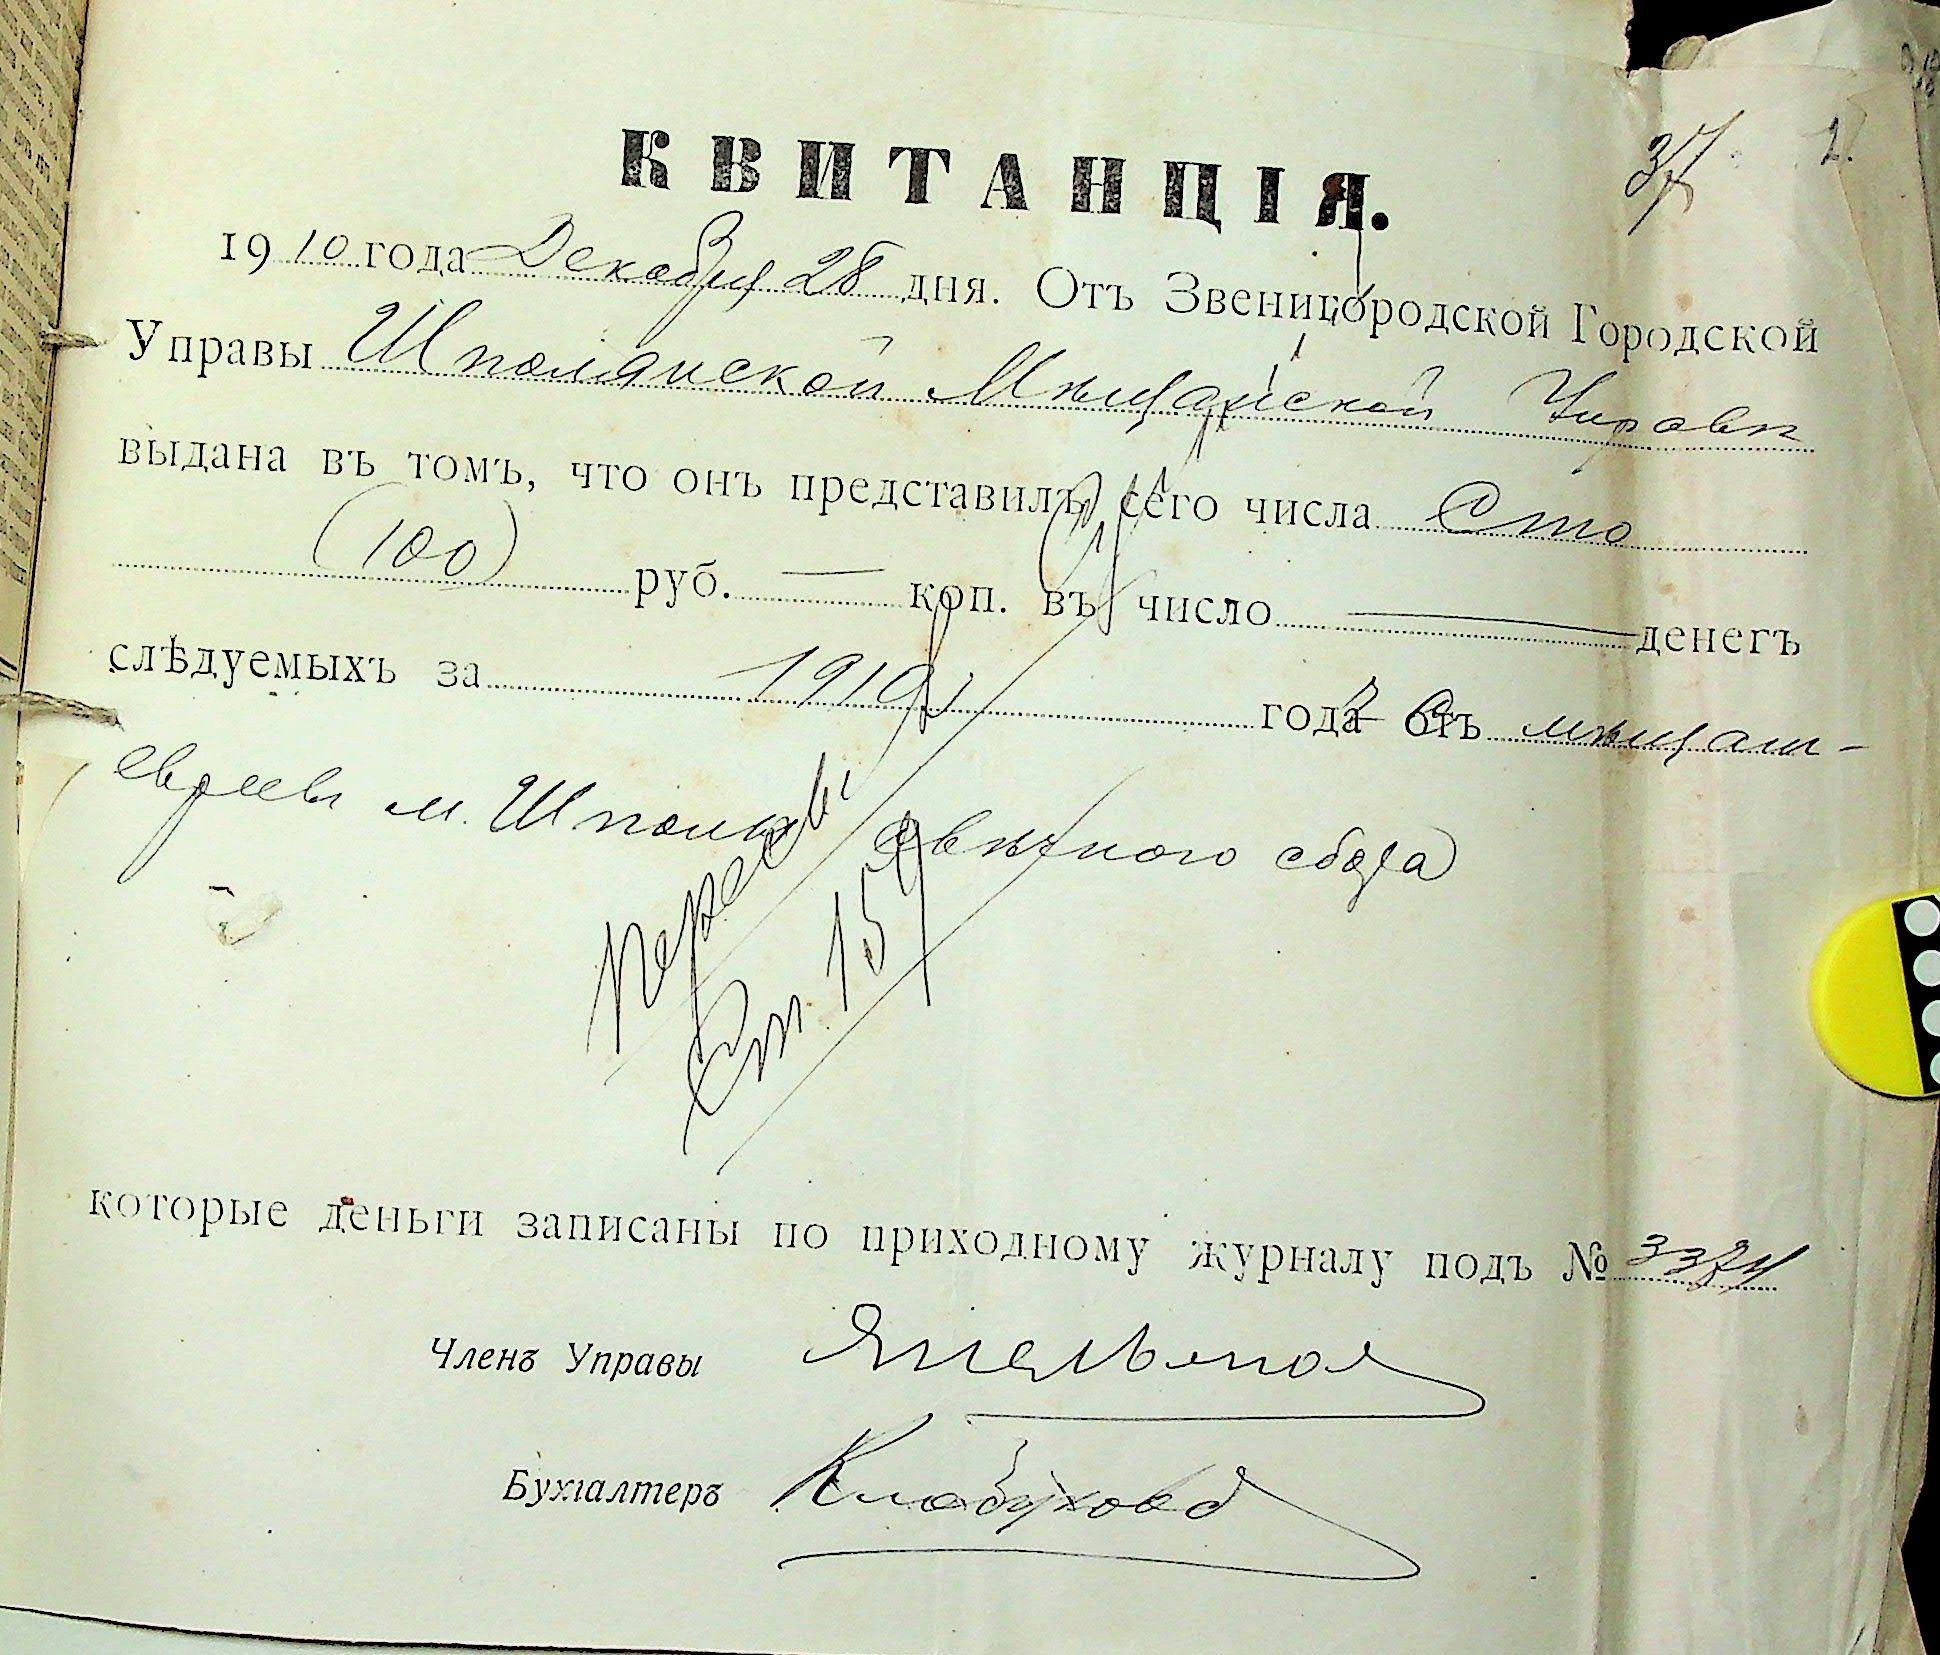 37
КВИТАНЦІЯ.
1910 года Декабря 28 дня. Отъ Звенигородской Городской
Управы Шполянской Мѣщанской Управѣ
выдана въ томъ, что онъ представилъ сего числа Сто
(100) руб. — коп. въ число — денегъ
слѣдуемыхъ за 1910 года съ мѣщан-
евреевъ м. Шполы свѣчного сбора
Ст. 159
которые деньги записаны по приходному журналу подъ № 3374
Членъ Управы
Бухгалтеръ Клабуковъ